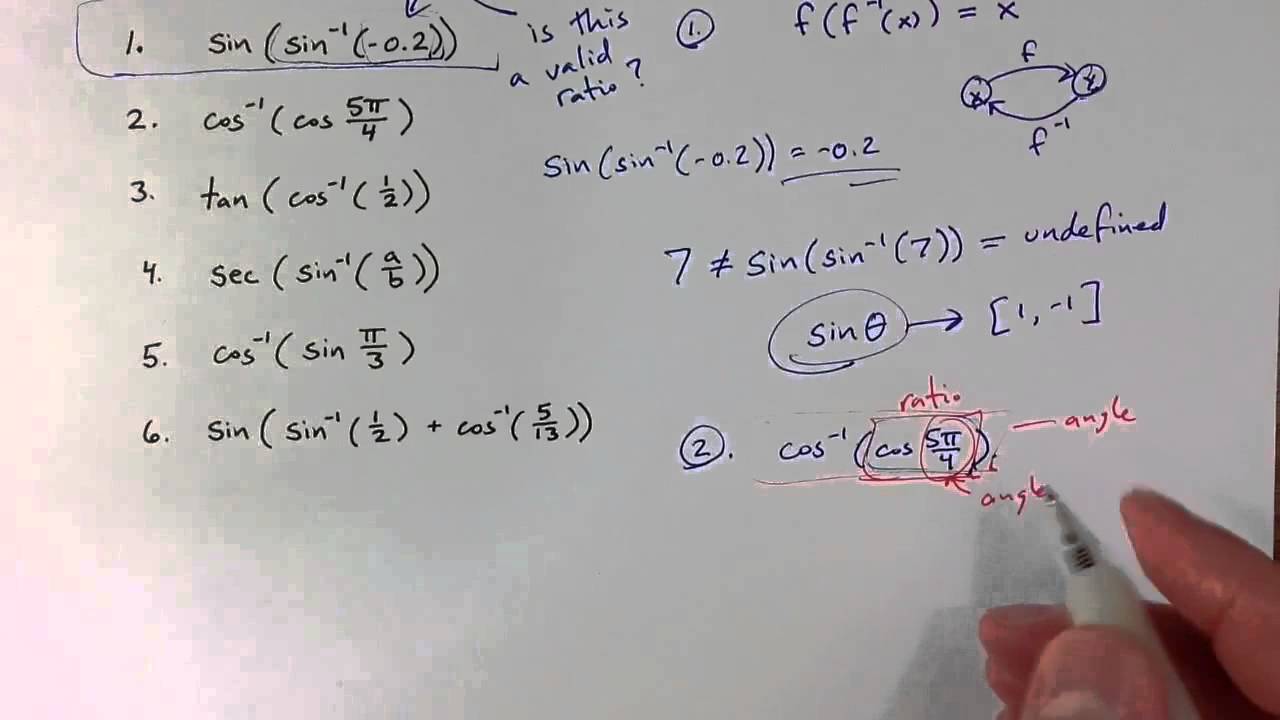 1. sin(sin⁻¹(-0.2))
is this
a valid
ratio?
2. cos⁻¹(cos 5π/4)
3. tan(cos⁻¹(1/2))
4. sec(sin⁻¹(a/b))
5. cos⁻¹(sin π/3)
6. sin(sin⁻¹(1/2) + cos⁻¹(5/13))
1. f(f⁻¹(x)) = x
f
x y
f⁻¹
sin(sin⁻¹(-0.2)) = -0.2
7 ≠ sin(sin⁻¹(7)) = undefined
sinθ → [1, -1]
ratio
2. cos⁻¹(cos 5π/4) — angle
angle